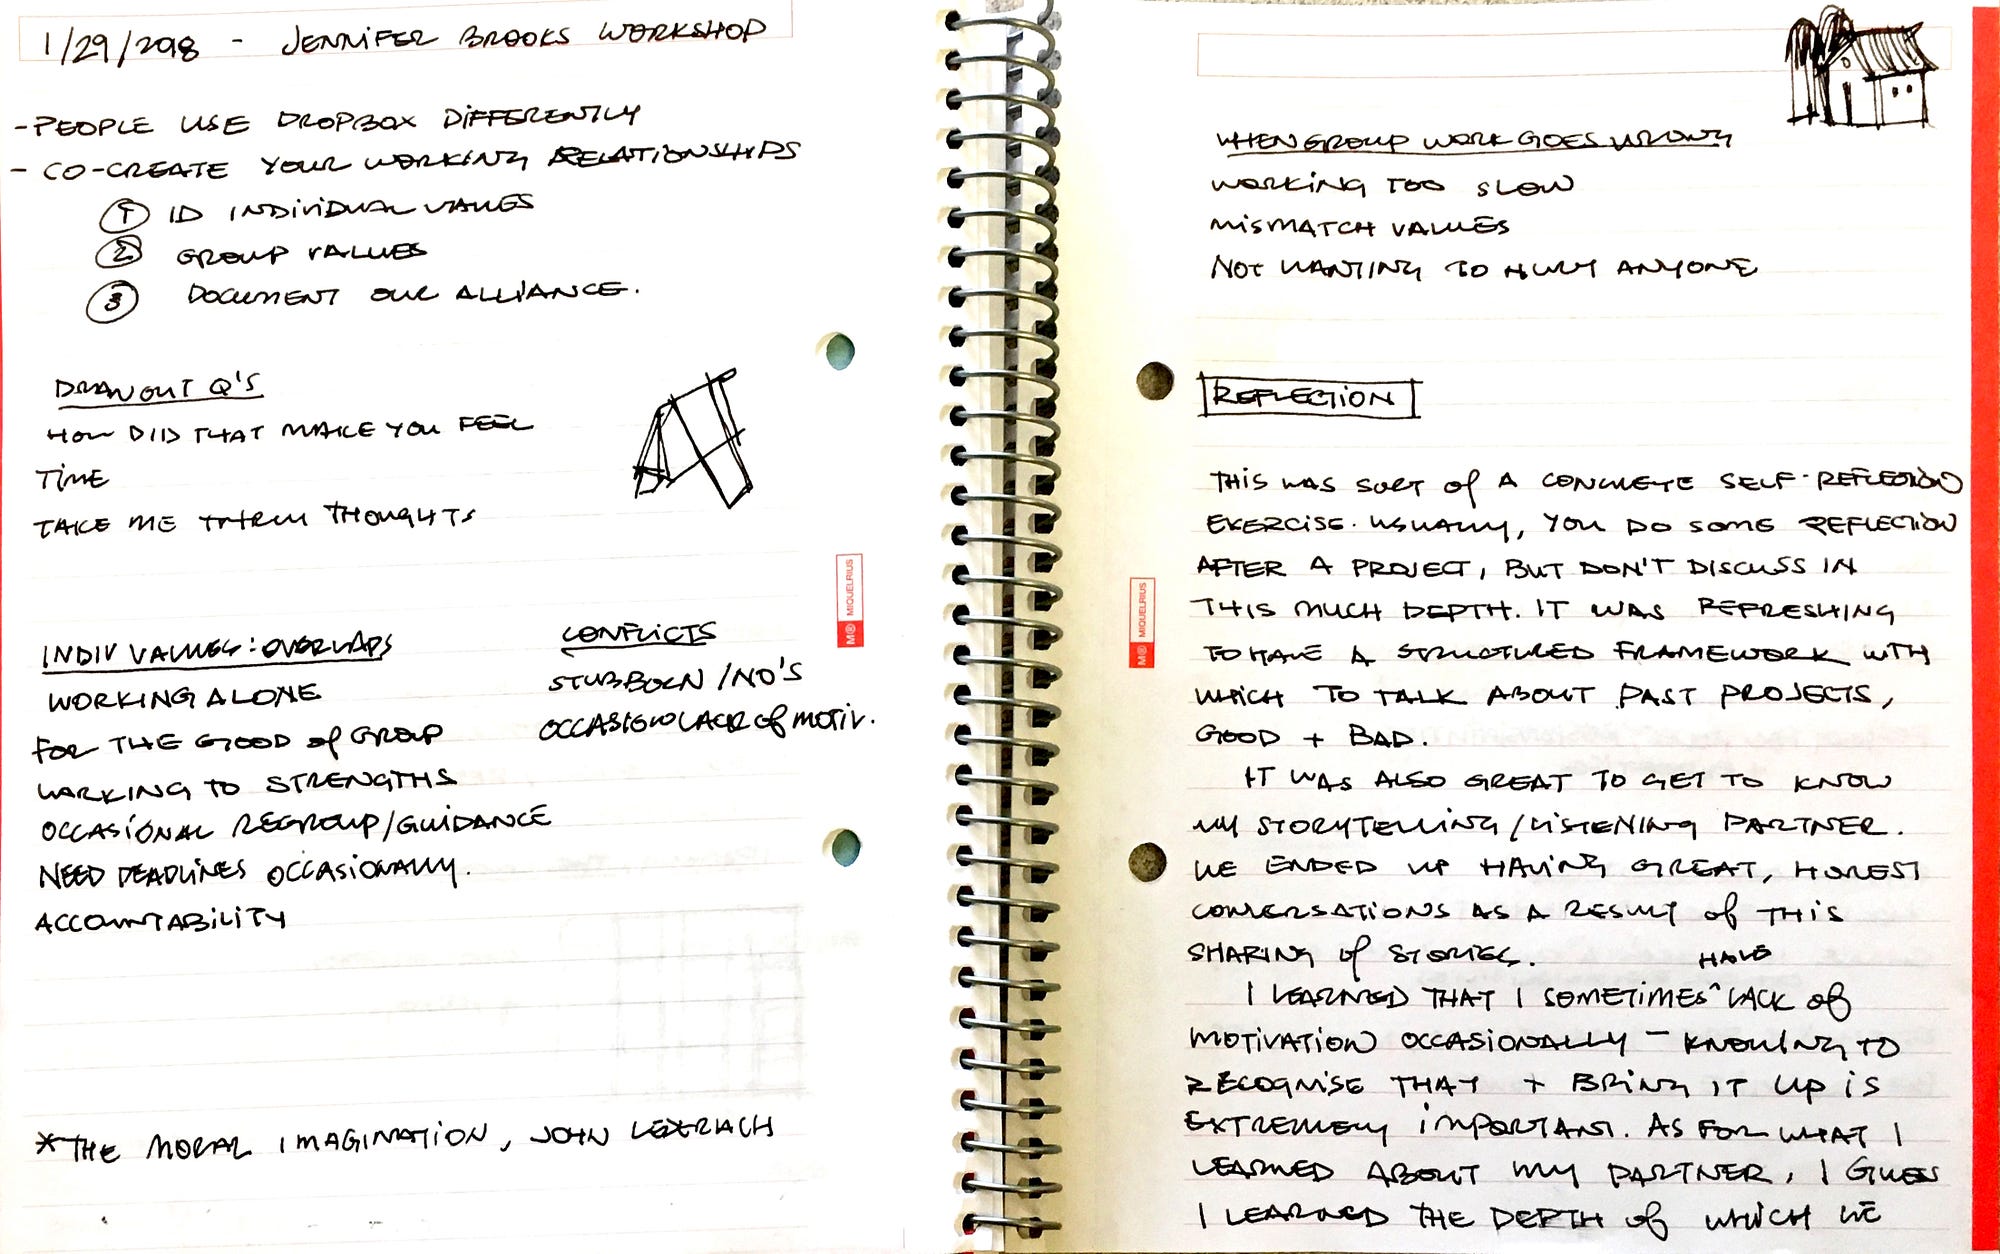 1/29/2018 - JENNIFER BROOKS WORKSHOP
- PEOPLE USE DROPBOX DIFFERENTLY
- CO-CREATE YOUR WORKING RELATIONSHIPS
1 ID INDIVIDUAL VALUES
2 GROUP VALUES
3 DOCUMENT OUR ALLIANCE.
DRAW OUT Q'S
HOW DID THAT MAKE YOU FEEL
TIME
TAKE ME THRU THOUGHTS
INDIV VALUES: OVERLAPS
WORKING ALONE
FOR THE GOOD OF GROUP
WORKING TO STRENGTHS
OCCASIONAL REGROUP/GUIDANCE
NEED DEADLINES OCCASIONALLY.
ACCOUNTABILITY
CONFLICTS
STUBBORN/NO'S
OCCASION LACK OF MOTIV.
*THE MORAL IMAGINATION, JOHN LEDERACH
M® MIQUELRIUS
WHEN GROUP WORK GOES WRONG
WORKING TOO SLOW
MISMATCH VALUES
NOT WANTING TO HURT ANYONE
REFLECTION
THIS WAS SORT OF A CONCRETE SELF-REFLECTION
EXERCISE. USUALLY, YOU DO SOME REFLECTION
AFTER A PROJECT, BUT DON'T DISCUSS IN
THIS MUCH DEPTH. IT WAS REFRESHING
TO HAVE A STRUCTURED FRAMEWORK WITH
WHICH TO TALK ABOUT PAST PROJECTS,
GOOD + BAD.
IT WAS ALSO GREAT TO GET TO KNOW
MY STORYTELLING/LISTENING PARTNER.
WE ENDED UP HAVING GREAT, HONEST
CONVERSATIONS AS A RESULT OF THIS
SHARING OF STORIES.
HAVE
I LEARNED THAT I SOMETIMES ^ LACK OF
MOTIVATION OCCASIONALLY - KNOWING TO
RECOGNISE THAT + BRING IT UP IS
EXTREMELY IMPORTANT. AS FOR WHAT I
LEARNED ABOUT MY PARTNER, I GUESS
I LEARNED THE DEPTH OF WHICH WE
M® MIQUELRIUS